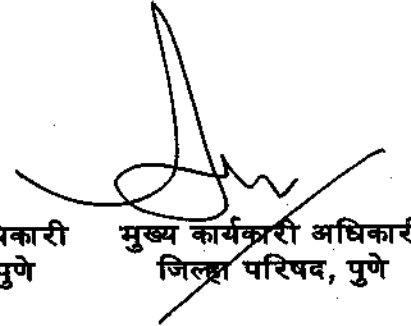 मुख्य कार्यकारी अधिकारी
पुणे जिल्हा परिषद, पुणे